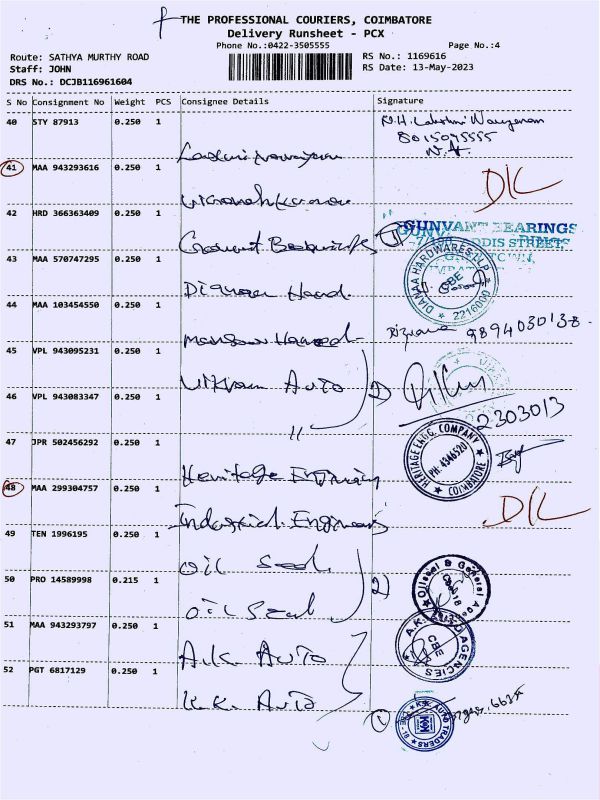 THE PROFESSIONAL COURIERS, COIMBATORE
Delivery Runsheet - PCX
Phone No.:0422-3505555
Page No.:4
Route: SATHYA MURTHY ROAD
RS No.: 1169616
Staff: JOHN
RS Date: 13-May-2023
DRS No.: DCJB116961604
S No Consignment No Weight PCS Consignee Details Signature
40 STY 87913 0.250 1
8015075555
41 MAA 943293616 0.250 1
D/L
42 HRD 366363409 0.250 1
GUNVANT BEARINGS
43 MAA 570747295 0.250 1
DIANAA HARDWARES LLP
CBE
2216000
44 MAA 103454550 0.250 1
9894030138
45 VPL 943095231 0.250 1
Vikram Auto 2)
46 VPL 943083347 0.250 1
"
2303013
47 JPR 502456292 0.250 1
Heritage
HERITAGE ENGG. COMPANY
PH: 4346520
COIMBATORE
48 MAA 299304757 0.250 1
Industrial Engineers
D/L
49 TEN 1996195 0.250 1
Oil Seal
50 PRO 14589998 0.215 1
2)
Oil Seal
Oilseal & General
51 MAA 943293797 0.250 1
A.K. Auto
AGENCIES
CBE
52 PGT 6817129 0.250 1
K.K. Auto
K.K. AUTO TRADERS